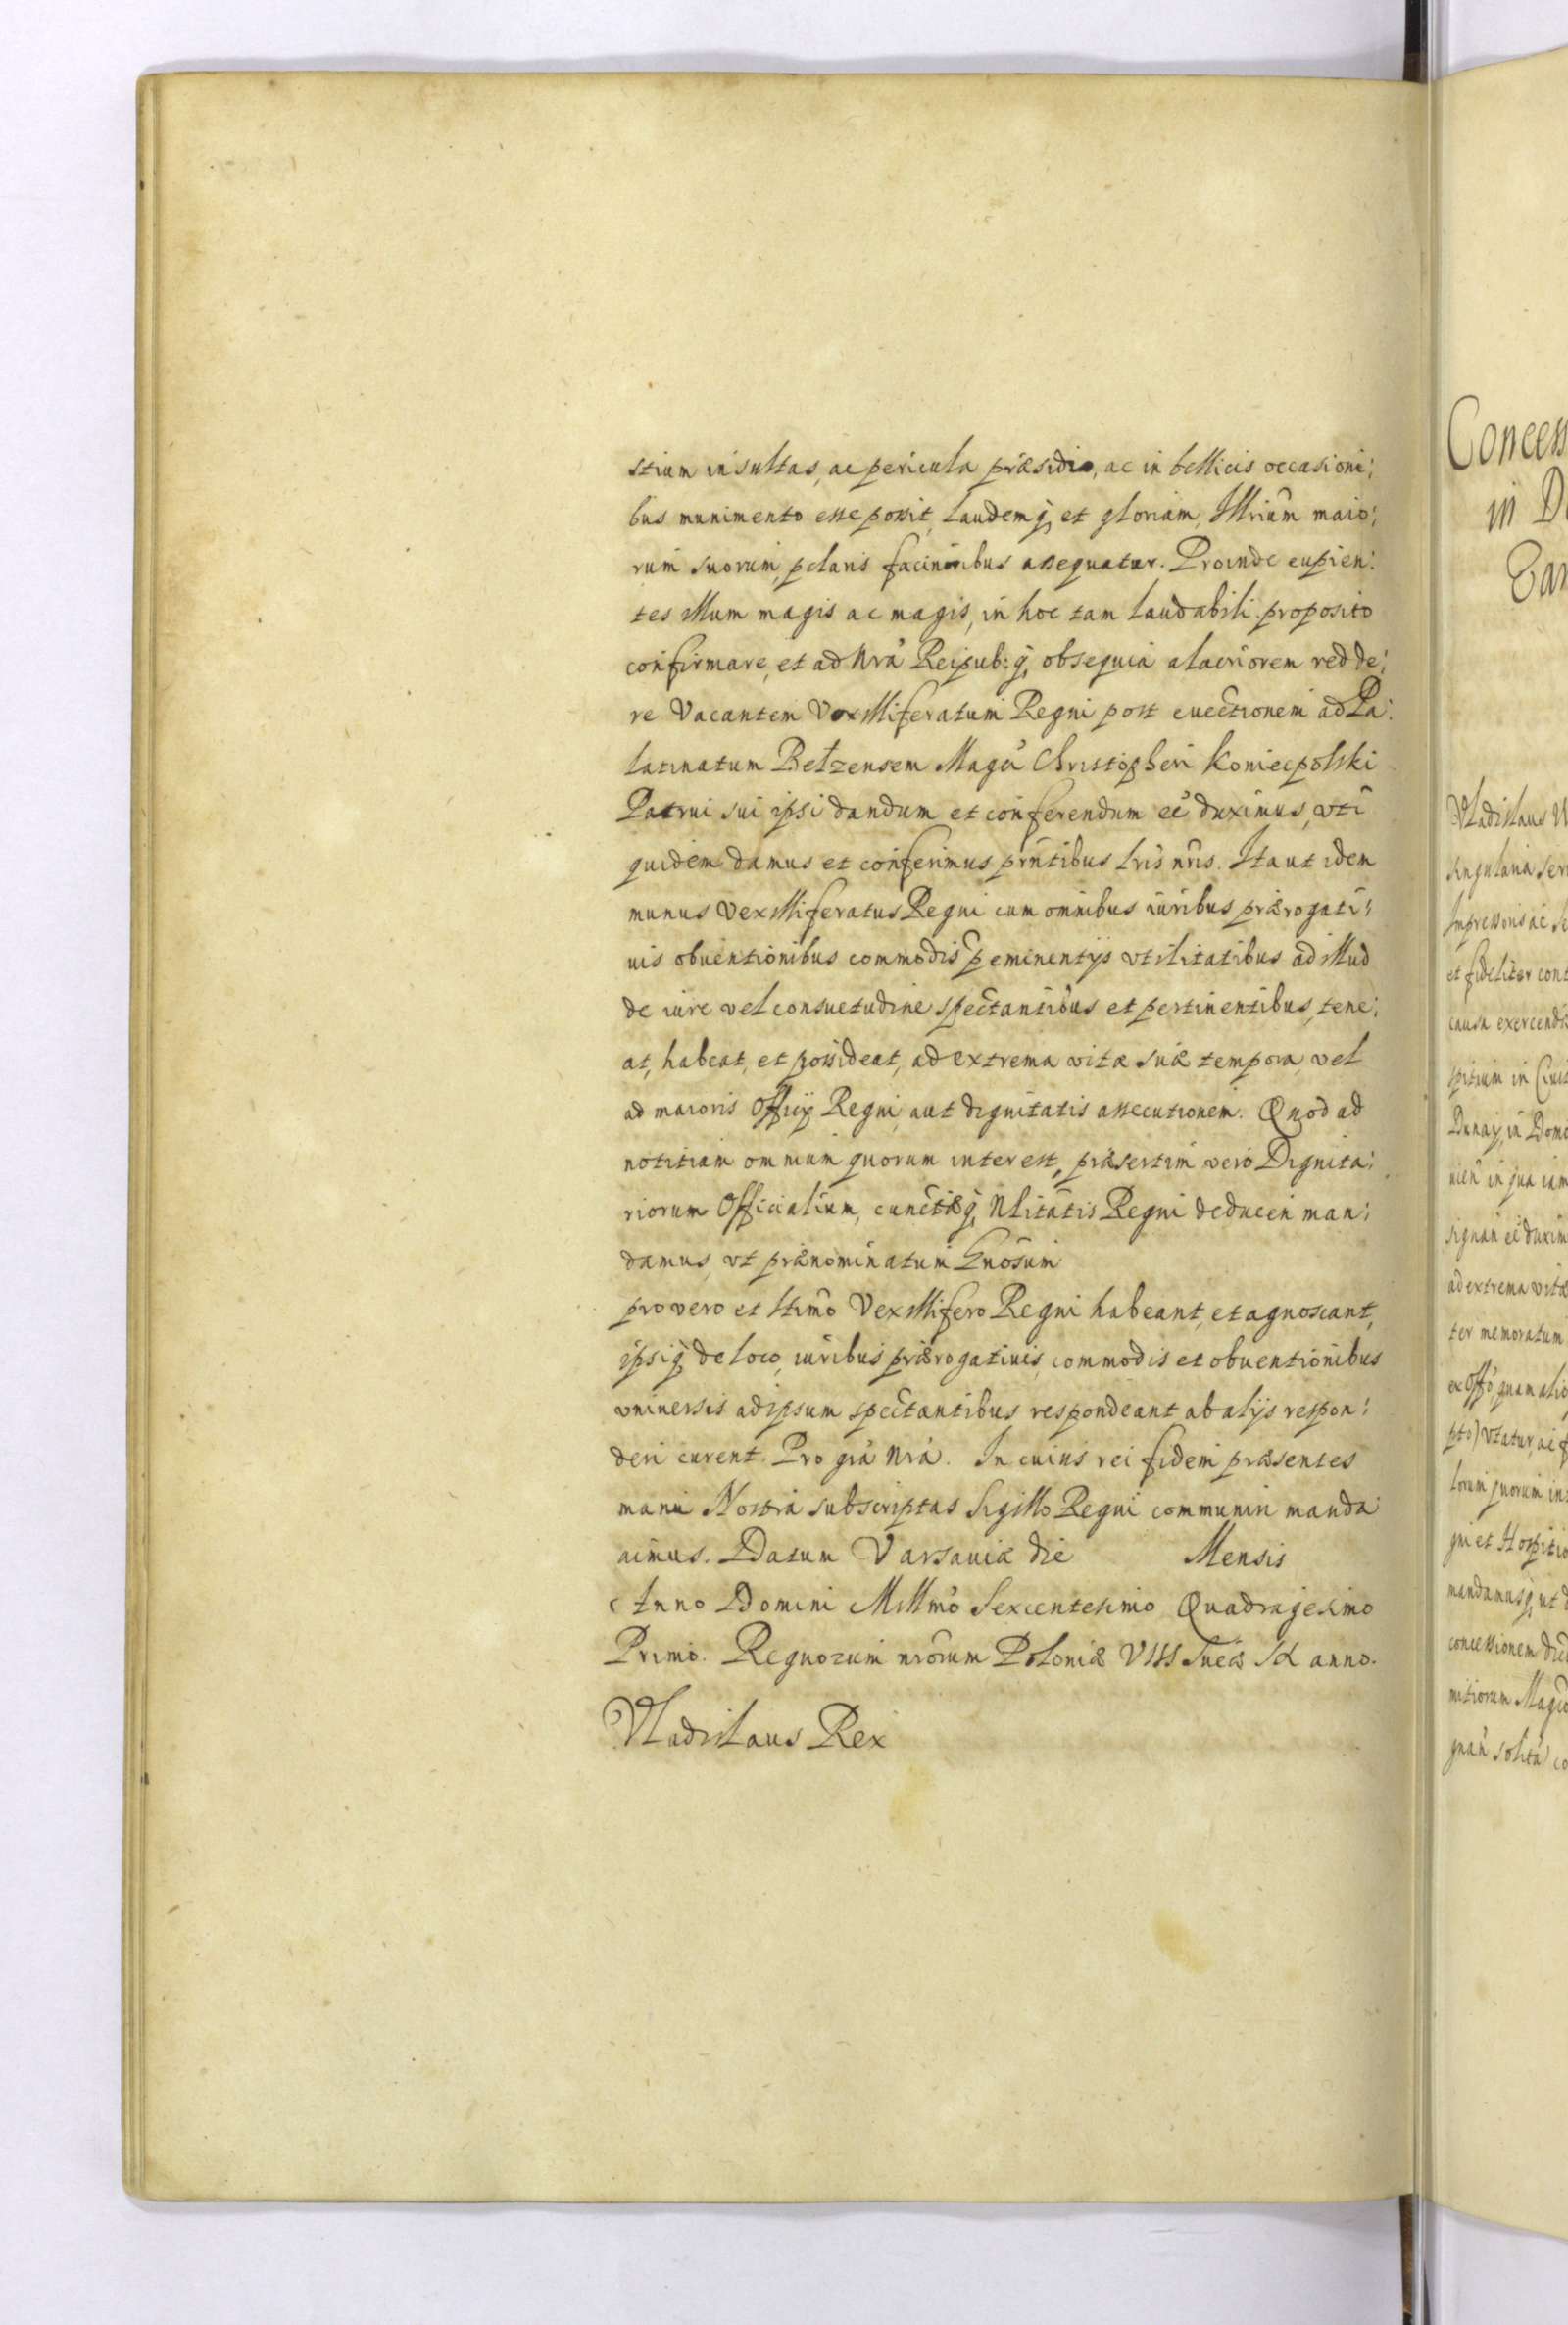 stium insultus, ac pericula præsidio, ac in bellicis occasioni:
bus munimento esse possit, laudemq₃ et gloriam, Illrium maio:
rum suorum, pclaris facinoribus assequatur. Proinde cupien:
tes illum magis ac magis, in hoc tam laudabili proposito
confirmare, et ad nra Reipub: q₃ obsequia alacriorem redde:
re Vacantem Vexilliferatum Regni post euectionem ad Pa:
latinatum Belzensem Magci Christopheri Koniecpolski
Patrui sui ipsi dandum et conferendum eē duximus, vti
quidem damus et conferimus prntibus lris nris. Ita ut idem
munus Vexilliferatus Regni cum omnibus iuribus prærogati:
uis obuentionibus commodis p̄eminentijs vtilitatibus ad illud
de iure vel consuetudine spectantibus et pertinentibus, tene:
at, habeat, et possideat, ad extrema vitæ suæ tempora, vel
ad maioris Officij Regni, aut dignitatis assecutionem. Quod ad
notitiam omnium quorum interest, præsertim vero Dignita:
riorum Officialium, cunctæq₃ Nlitatis Regni deduceri man:
damus, vt prænominatum Gnosum
pro vero et ltimo Vexillifero Regni habeant, et agnoscant,
ipsiq₃ de loco, iuribus prærogatiuis, commodis et obuentionibus
vniuersis ad ipsum spectantibus respondeant ab alijs respon:
deri curent. Pro gra nra. In cuius rei fidem præsentes
manu Nostra subscriptas Sigillo Regni communiri manda
uimus. Datum Varsauiæ die Mensis
Anno Domini Millmo Sexcentesimo Quadragesimo
Primo. Regnorum nrorum Poloniæ VIII Sueciæ IX anno.
Vladislaus Rex
Concess
in D
Vladislaus
singularia ser
Impressoris ac Se
et fideliter cont
causa exercend
spitium in Ciui
Dunay, in Domo
in qua iam
signan eē duxim
ad extrema vitæ
ter memoratum
ex Offo quam alio
pto) vtatur, ac f
lorum quorum in
gni et Hospitio
mandamusq₃ ut d
concessionem dict
Magco
solita co